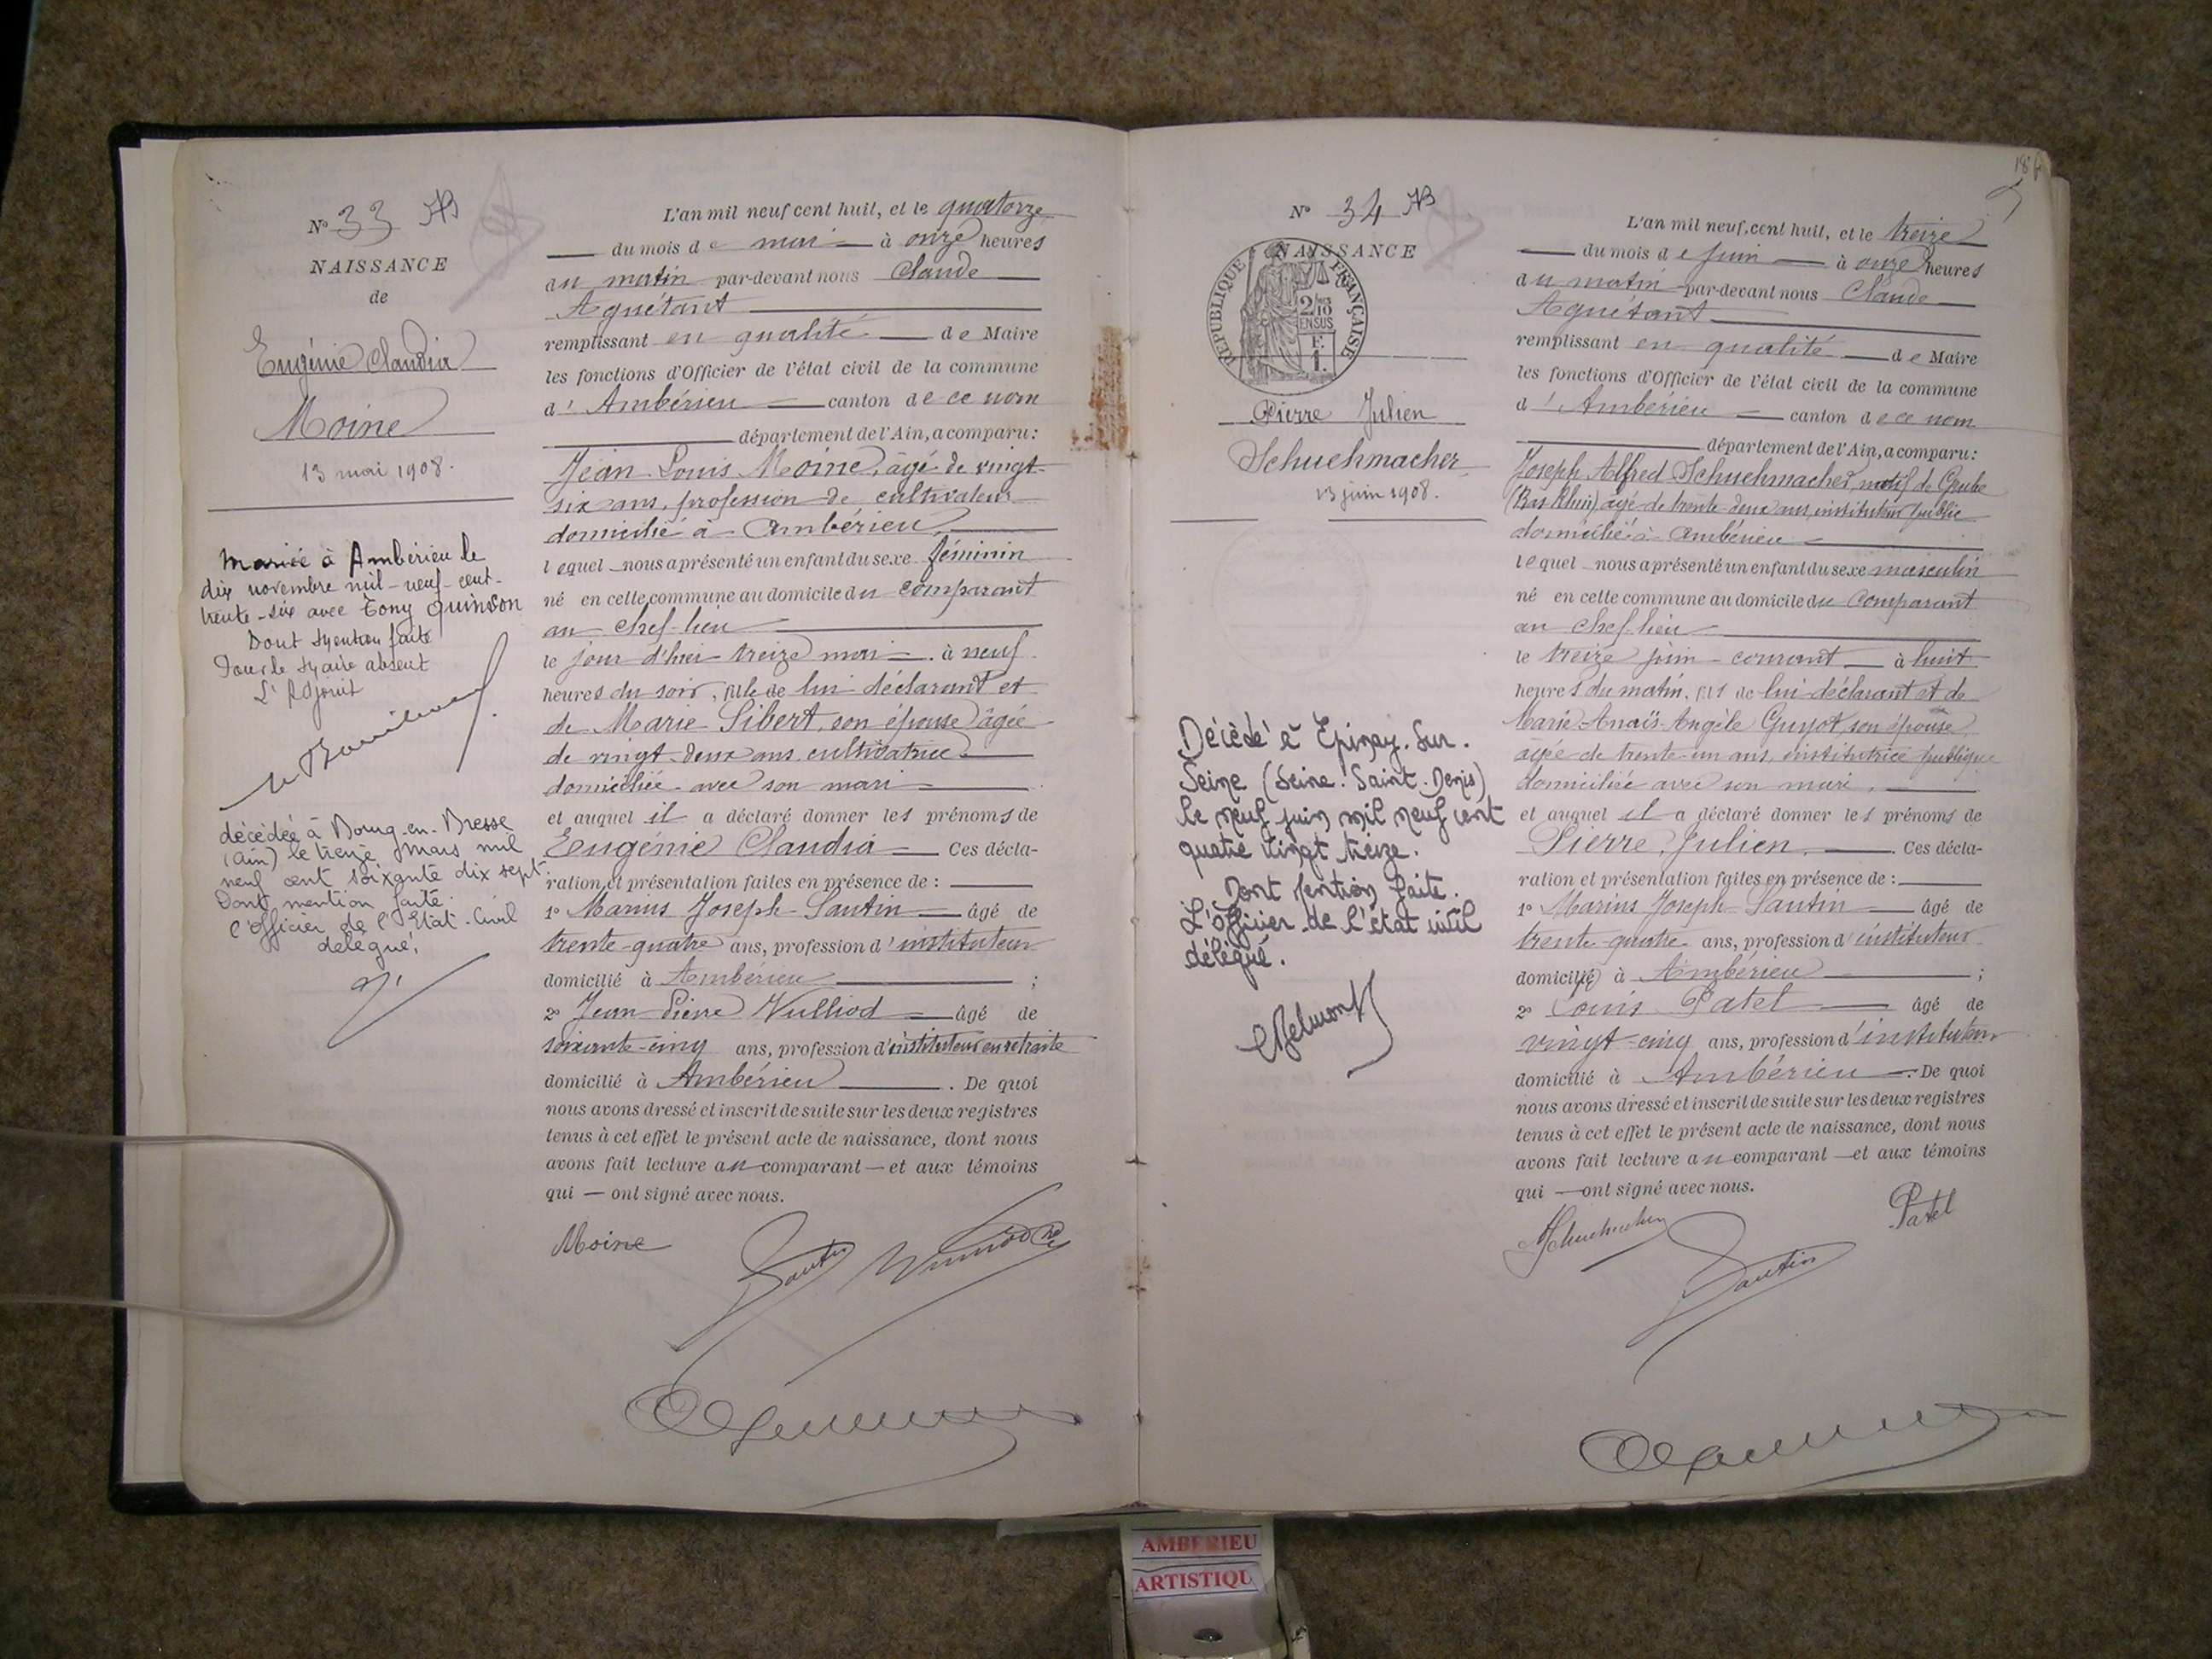 N° 33 AB
NAISSANCE
de
Eugénie Claudia
Moine
13 mai 1908.
Mariée à Ambérieu le
dix novembre mil-neuf-cent-
trente-six avec Tony Quinson
Dont mention faite
Pour le Maire absent
L'Adjoint
décédée à Bourg-en-Bresse
(Ain) le treize mars mil
neuf cent soixante dix sept.
Dont mention faite.
l'officier de l'Etat-Civil
délégué,
L'an mil neuf cent huit, et le quatorze
du mois de mai à onze heures
du matin par-devant nous Claude
Aguétant
remplissant en qualité de Maire
les fonctions d'Officier de l'état civil de la commune
d'Ambérieu canton de ce nom
département de l'Ain, a comparu :
Jean Louis Moine, âgé de vingt-
six ans, profession de cultivateur
domicilié à Ambérieu,
lequel nous a présenté un enfant du sexe féminin
né en cette commune au domicile du comparant
au chef-lieu
le jour d'hier treize mai à neuf
heures du soir, fille de lui déclarant et
de Marie Sibert, son épouse âgée
de vingt-deux ans, cultivatrice
domiciliée avec son mari
et auquel il a déclaré donner les prénoms de
Eugénie Claudia Ces décla-
ration et présentation faites en présence de :
1° Marius Joseph Santin âgé de
trente-quatre ans, profession d'instituteur
domicilié à Ambérieu ;
2° Jean Pierre Vulliod âgé de
soixante-cinq ans, profession d'instituteur en retraite
domicilié à Ambérieu . De quoi
nous avons dressé et inscrit de suite sur les deux registres
tenus à cet effet le présent acte de naissance, dont nous
avons fait lecture au comparant — et aux témoins
qui — ont signé avec nous.
Moine
N° 34 AB
NAISSANCE
REPUBLIQUE FRANÇAISE
2/10
EN SUS
F.
1.
Pierre Julien
Schuehmacher
13 juin 1908.
Décédé à Epinay-sur-
Seine (Seine-Saint-Denis)
le neuf juin mil neuf cent
quatre vingt treize.
Dont mention faite.
L'officier de l'état civil
délégué.
L'an mil neuf cent huit, et le treize
du mois de juin à onze heures
du matin par-devant nous Claude
Aguétant
remplissant en qualité de Maire
les fonctions d'Officier de l'état civil de la commune
d'Ambérieu canton de ce nom
département de l'Ain, a comparu :
Joseph Alfred Schuehmacher, natif de
(Bas Rhin) âgé de trente-deux ans, instituteur public
domicilié à Ambérieu
lequel nous a présenté un enfant du sexe masculin
né en cette commune au domicile du comparant
au chef-lieu
le treize juin courant à huit
heures du matin, fils de lui déclarant et de
Marie-Anaïs-Angèle Guyot, son épouse,
agée de trente-un ans, institutrice publique
domiciliée avec son mari,
et auquel il a déclaré donner les prénoms de
Pierre, Julien. Ces décla-
ration et présentation faites en présence de :
1° Marius Joseph Santin âgé de
trente-quatre ans, profession d'instituteur
domicilié à Ambérieu ;
2° Louis Patel âgé de
vingt-cinq ans, profession d'instituteur
domicilié à Ambérieu . De quoi
nous avons dressé et inscrit de suite sur les deux registres
tenus à cet effet le présent acte de naissance, dont nous
avons fait lecture au comparant — et aux témoins
qui — ont signé avec nous.
Patel
Santin
AMBERIEU
ARTISTIQU